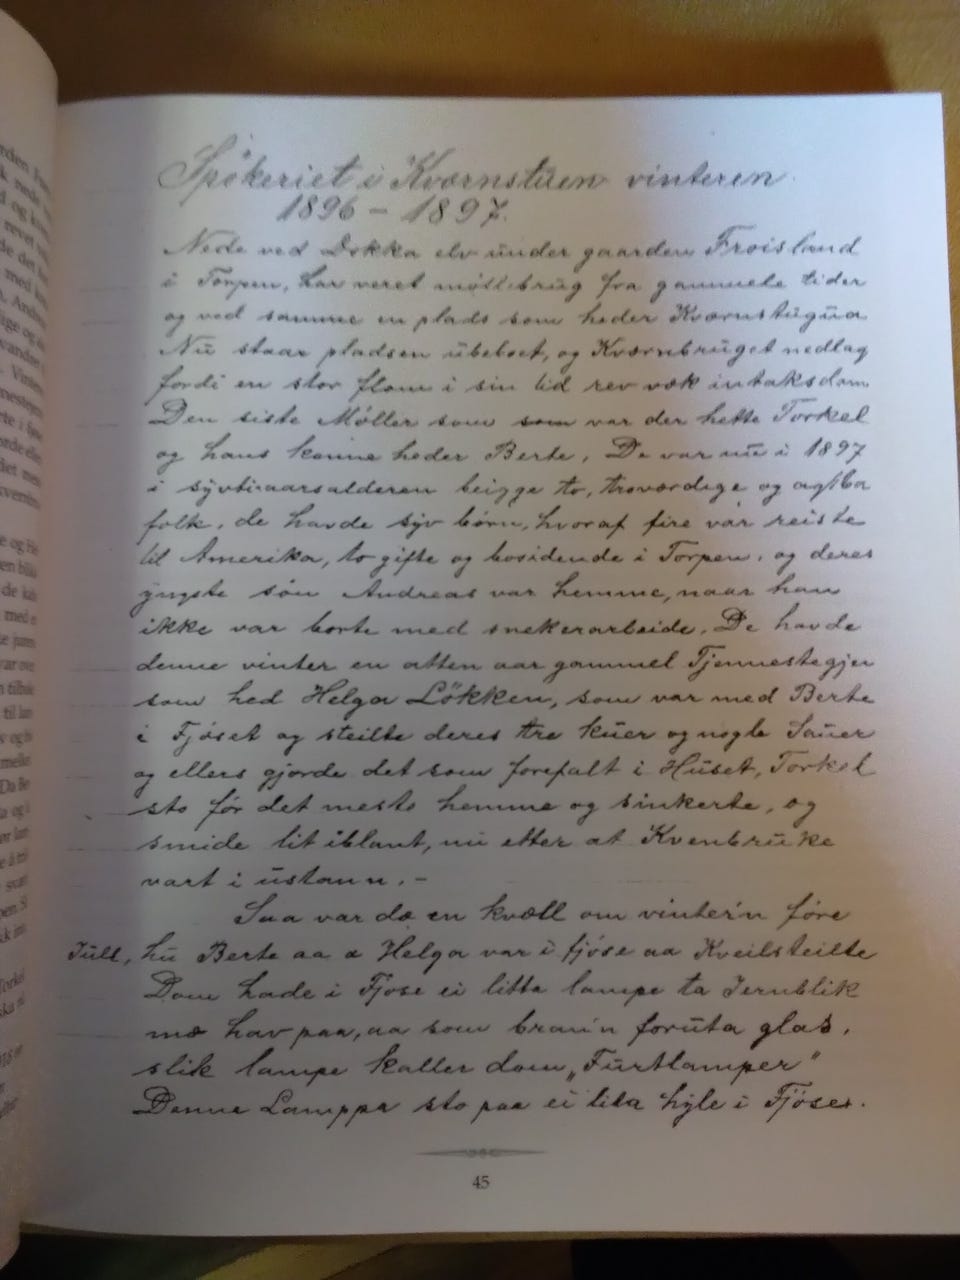 Spökeriet i Kvœrnstuen vinteren
1896 – 1897.
Nede ved Dokka elv under gaarden Froisland
i Torpen, har veret möllebrug fra gammele tider
og ved samme en plads som heder Kvœrnstugua
Nu staar pladsen ubeboet, og Kvœrnbruget nedlag
fordi en stor flom i sin tid rev væk intaksdam
Den siste Møller som som var der hette Torkel
og hans konne heder Berte. De var nu i 1897
i syvtiaarsalderen beigge to, troværdige og agtba
folk, de havde syv börn, hvoraf fire var reiste
til Amerika, to gifte og bosidende i Torpen, og deres
yngste sön Andreas var hemme, naar han
ikke var borte med snekerarbeide. De havde
denne vinter en atten aar gammel Tjennestegjen
som hed Helga Lökken, som var med Berte
i Fjöset og steilte deres tre kuer og nogle Sauer
og ellers gjorde det som forefalt i Huset, Torkel
sto för det meste hemme og sinkerte, og
smide lit iblant, nu etter at Kvenbruke
vart i ustann. –
Saa var dæ en kvæll om vinter'n føre
Jull, hu Berte aa a Helga var i fjöse aa Kveilsteilte
Dom hade i Fjöse ei litta lampe ta Jernblik
mæ hav paa, aa som brann foruta glas,
slik lampe kaller dom „Furtlamper"
Denne Lamppa sto paa ei lita hyle i Fjöse.
45